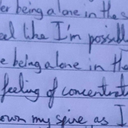 being alone in the s
el like I'm possibl
e being alone in the
feeling of concentrat
own my spine as I